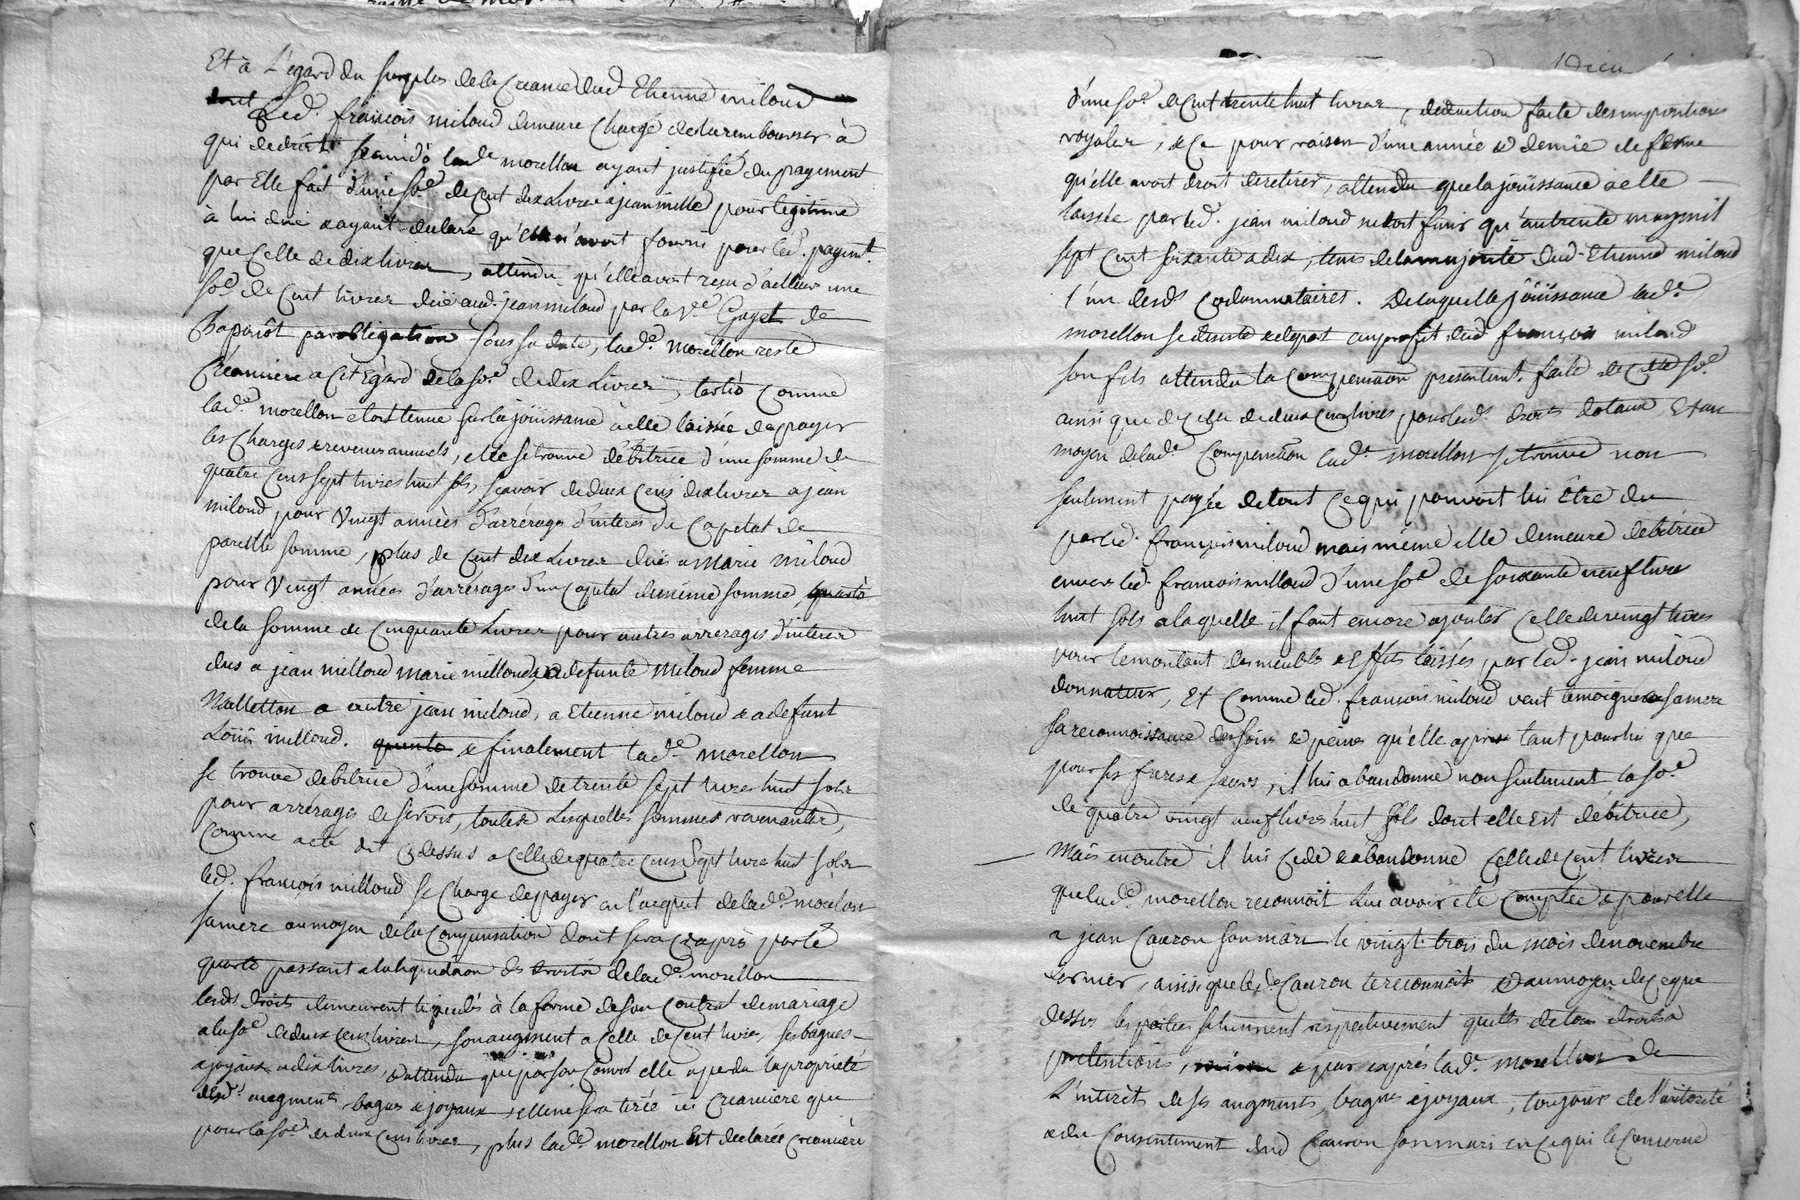 Et à L'égard du surplus de la Creance dud. Etienne miloud
Led. francois miloud demeure Chargé de la rembourser à
qui de droit. Secundò lad.e morellon ayant justifié du payement
par Elle fait d'une so.e de cent dix Livres a jean mille pour legitime
à lui due et ayant declaré qu'elle n'avoit fourni pour led. payem.t
que Celle de dix livres, attendu qu'elle avoit reçu d'ailleurs une
so.e de Cent livres düe aud. jean miloud par la v.e Gayet de
par obligation sous sa date, lad.e morellon reste
Creanciere a cet Egard de la so.e de dix Livres, tertiò Comme
lad.e morellon etoit tenue sur la joüissance à elle laissée de payer
les Charges et revenus annuels, elle se trouve débitrice d'une somme de
quatre cens sept livres huit sols, sçavoir de deux cens dix livres a jean
miloud pour vingt années d'arrérages d'interes du Capital de
pareille somme, plus de Cent dix Livres dües a Marie miloud
pour vingt années d'arrérages d'un Capital de même somme, quarto
de la somme de Cinquante Livres pour autres arrerages d'interes
dus a jean milloud marie milloud, a defunte Miloud femme
Nalletton a autre jean miloud, a Etienne miloud et a defunt
Loüis milloud. quinto et finalement lad.e morellon
se trouve débitrice d'une somme de trente sept livres huit sols
pour arrérages de servis, toutes Lesquelles sommes revenantes,
Comme a eté dit cy dessus a celle de quatre cens sept livres huit sols
led. françois milloud se Charge de payer a l'acquit de lad.e morellon
sa mere au moyen de la Compensation dont sera cy après parlé
quarto passant a la liquidaon des droits de lad.e morellon
lesds droits demeurent liquidés à la forme de son Contrat de mariage
a la so.e de deux cens livres, son augment a celle de Cent livres, ses bagues
et joyaux a dix livres, et attendu que par son Convol elle a perdu la propriété
desd. augment, bagues et joyaux, elle ne sera tirée ici Creanciere que
pour la so.e de deux cens livres, plus lad.e morellon Est declarée creanciere
d'une so.e de Cent trente huit livres, deduction faite des impositions
royales, et Ce pour raison d'une année et demie de ferme
qu'elle avoit droit de retirer, attendu que la joüissance a elle
laissée par led. jean miloud ne doit finir qu'au trente may mil
sept cent soixante et dix, tems de la majorité dud. Etienne miloud
l'un desds Codonnataires. De laquelle joüissance lad.e
morellon se desiste et depart au profit dud. françois miloud
son fils attendu la Compensaon presentem.t faite de cette so.e
ainsi que de Celle de deux Cens livres pour sesd. droits dotaux Et au
moyen de lad.e Compensaon lad.e morellon se trouve non
seulement payée de tout Ce qui pouvoit lui Etre du
par led. francois miloud mais même elle demeure débitrice
envers led. francois milloud d'une so.e de soixante neuf livres
huit sols a laquelle il faut encore ajouter Celle de vingt livres
pour le montant des meubles et Effets laissés par led. jean miloud
donnateur, Et Comme led. francois miloud veut temoigner a sa mere
sa reconnoissance des soins et peines qu'elle a pris tant pour lui que
pour ses freres et sœurs, il lui abandonne non seulement la so.e
de quatre vingt neuf livres huit sols dont elle Est débitrice,
Mais en outre il lui cede et abandonne Celle de cent livres
que lad.e morellon reconnoit lui avoir eté Comptée et pour elle
a jean Cauron son mari le vingt trois du mois de novembre
dernier, ainsi que led. Cauron le reconnoit et au moyen de Ce que
dessus les parties se tiennent respectivement quittes de tous droits et
pretentions, et par exprés lad.e morellon de
L'intérêt de ses augments, bagues et joyaux, toujours de l'autorité
et du Consentement dud. Cauron son mari en ce qui le Concerne